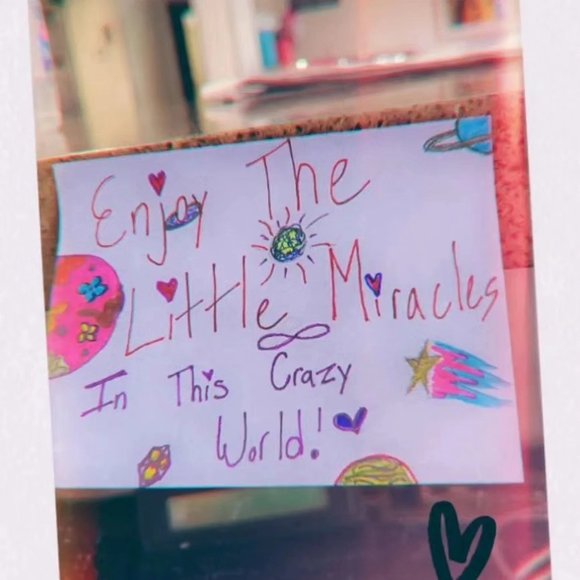 Enjoy The
Little Miracles
In This Crazy
World!